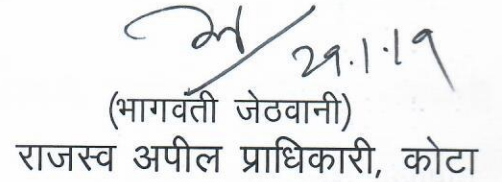 29.1.19
(भागवंती जेठवानी)
राजस्व अपील प्राधिकारी, कोटा